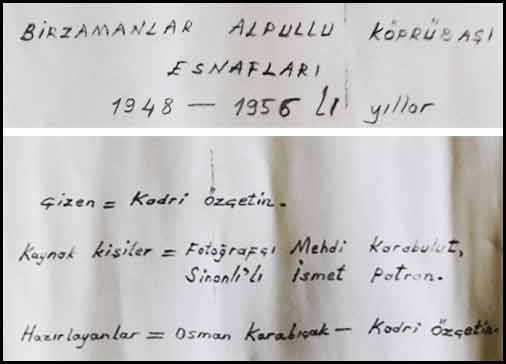 BİRZAMANLAR ALPULLU KÖPRÜBAŞI
ESNAFLARI
1948 — 1956 lı yıllar
Çizen = Kadri Özçetin.
Kaynak kişiler = Fotoğrafçı Mehdi Karabulut,
Sinanlı'lı İsmet Patron.
Hazırlayanlar = Osman Karabıçak — Kadri Özçetin.